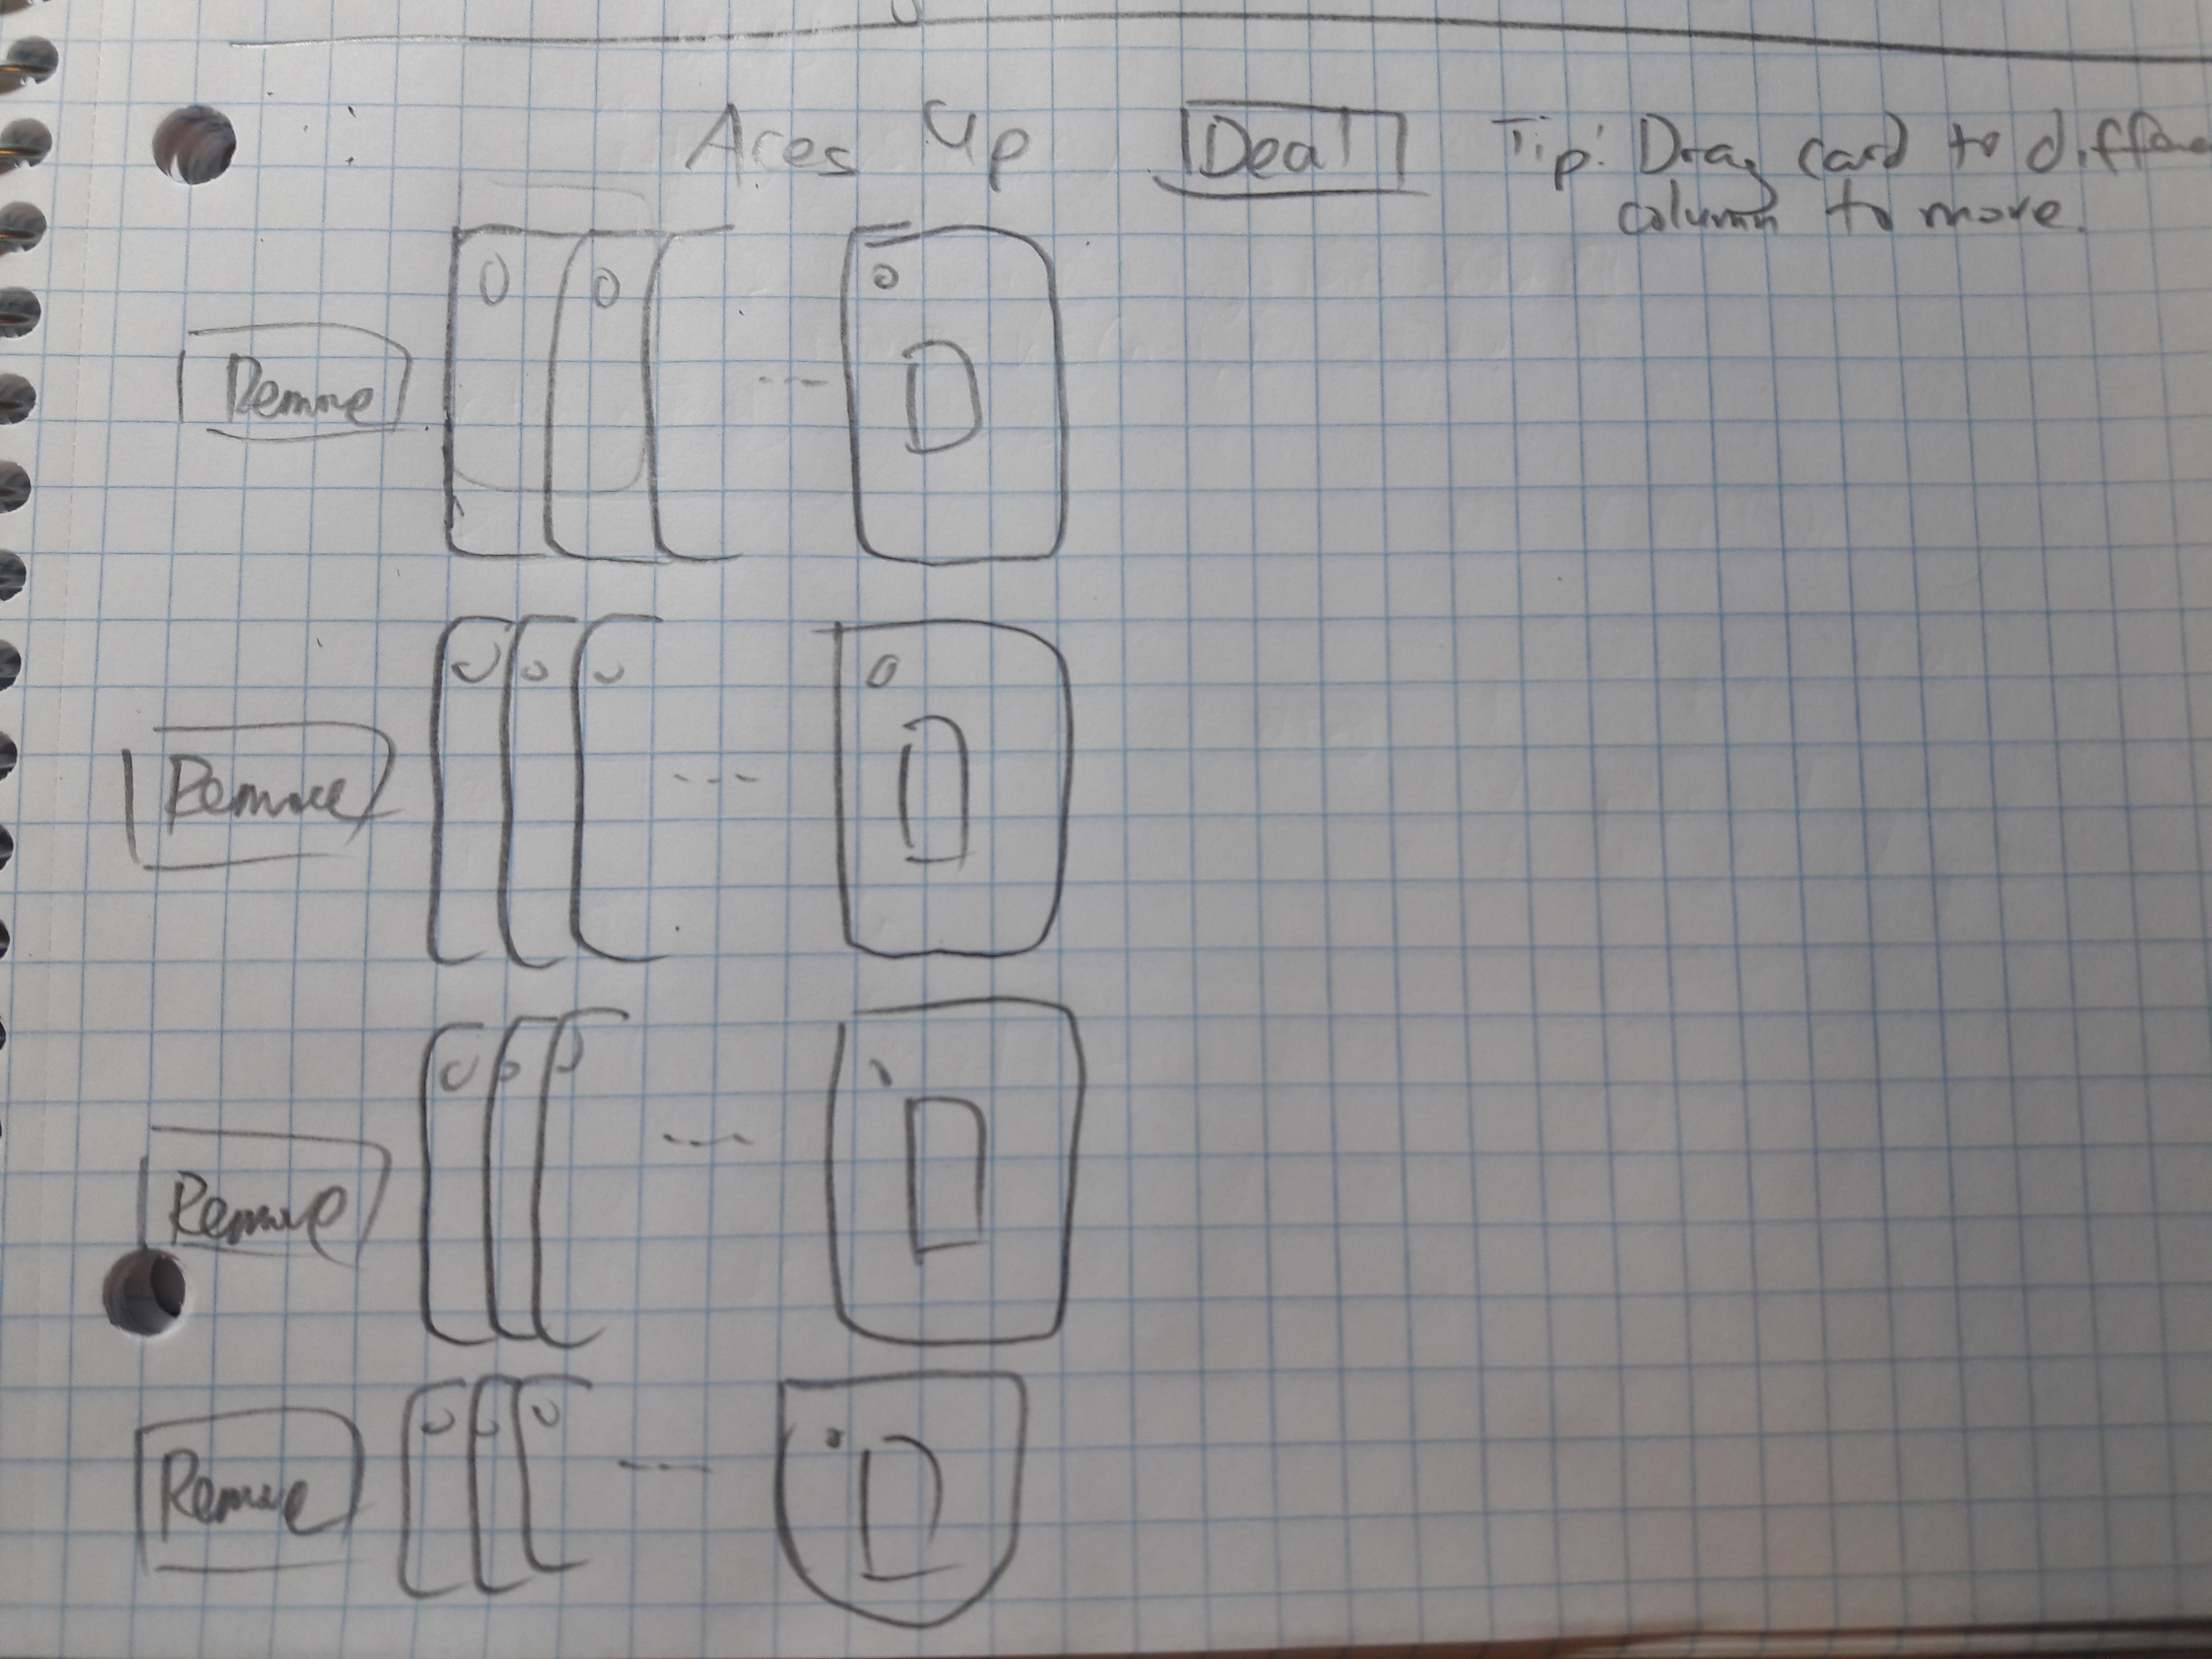 Aces Up
Deal
Tip: Drag card to
column to move.
Remove
Remove
Remove
Remove